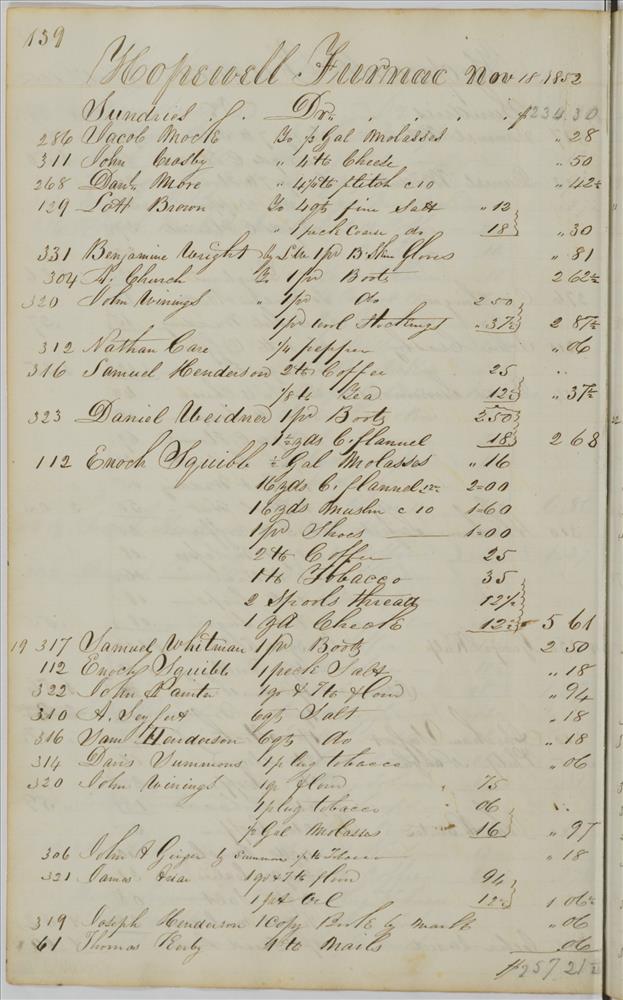 139
Hopewell Furnac Nov 18 1852
Sundries Dr. $234.30
286 Jacob Mock To Gal Molasses " 28
311 John Crosby " 4 lb Cheese " 50
268 Danl. More " 4½ lb flitch c 10 " 42½
129 Lott Brown To 4 qts fine Salt " 12
" 1 peck Coarse do 18 " 30
331 Benjamine Wright by 1 pr B. Skin Gloves " 81
304 Church To 1 pr Boots 2 62½
320 John Winings " 1 pr do 2 50
1 pr wool Stockings " 37½ 2 87½
312 Nathan Care ¼ pepper " 06
316 Samuel Henderson 2 lb Coffee 25
⅛ lb Tea 12½ " 37½
323 Daniel Weidner 1 pr Boots 2.50
1½ yds C. flannel 18 2 68
112 Enoch Squibb ½ Gal Molasses " 16
16 yds C. flannel 12½ 2=00
16 yds Muslin c 10 1=60
1 pr Shoes 1=00
2 lb Coffee 25
1 lb Tobacco 35
2 Spools thread 12½
1 yd Check 12½ 5 61
19 317 Samuel Whitman 1 pr Boots 2 50
112 Enoch Squibb 1 peck Salt " 18
322 John Painter 1 qr & 7 lb flour " 94
310 A. Seyfert 6 qts Salt " 18
316 Saml Henderson 6 qts do " 18
314 Davis Summons 1 plug tobacco " 06
320 John Winings 1 qr flour " 75
1 plug tobacco 06
Gal Molasses 16 " 97
306 John Geiger by Tobacco " 18
321 James 1 qr & 7 lb flour 94
1 pt Oil 12½ 1 06½
319 Joseph Henderson 1 Copy Book by " 06
61 Thomas Kerby 4 lb Nails .06
$257 21½